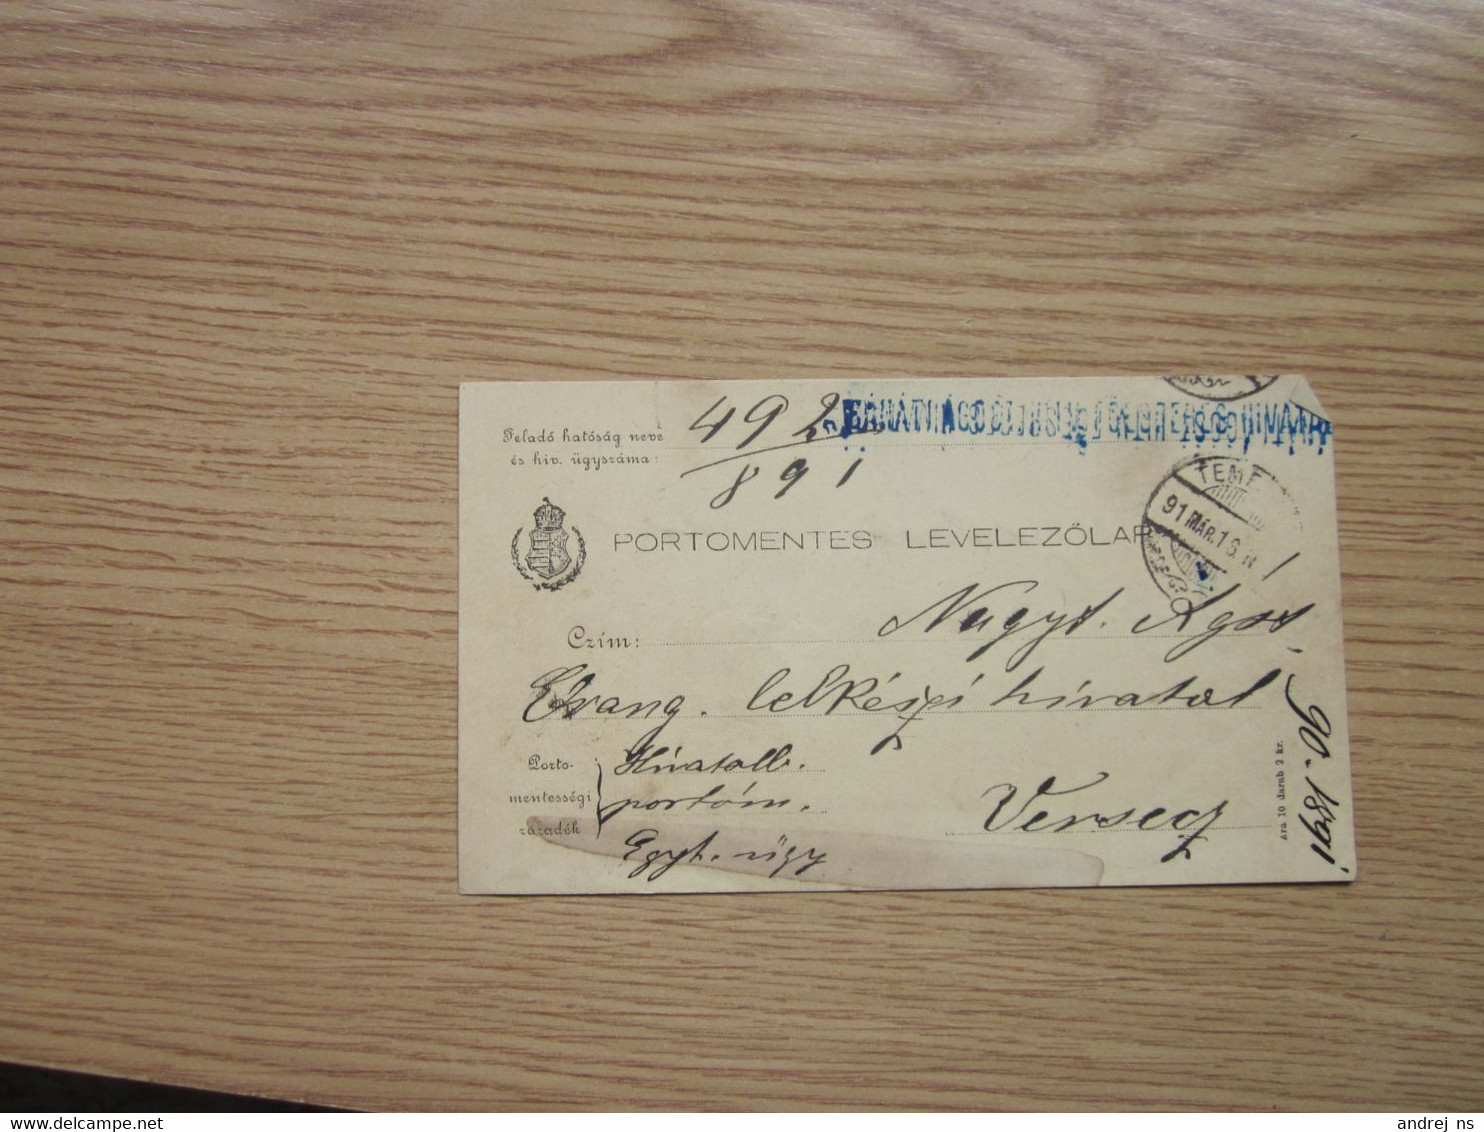 492
Feladó hatóság neve
és hiv. ügyszáma:
891
TEME
91 MÁR. 16. N
PORTOMENTES LEVELEZŐLAP
Czím: Nagyt. Ágst.
Evang. lelkészi hivatal
Porto-
mentességi
záradék
Hivatalb.
portóm.
Egyh. ügy
Versecz
Ára 10 darab 2 kr.
90. 1891
andrej ns